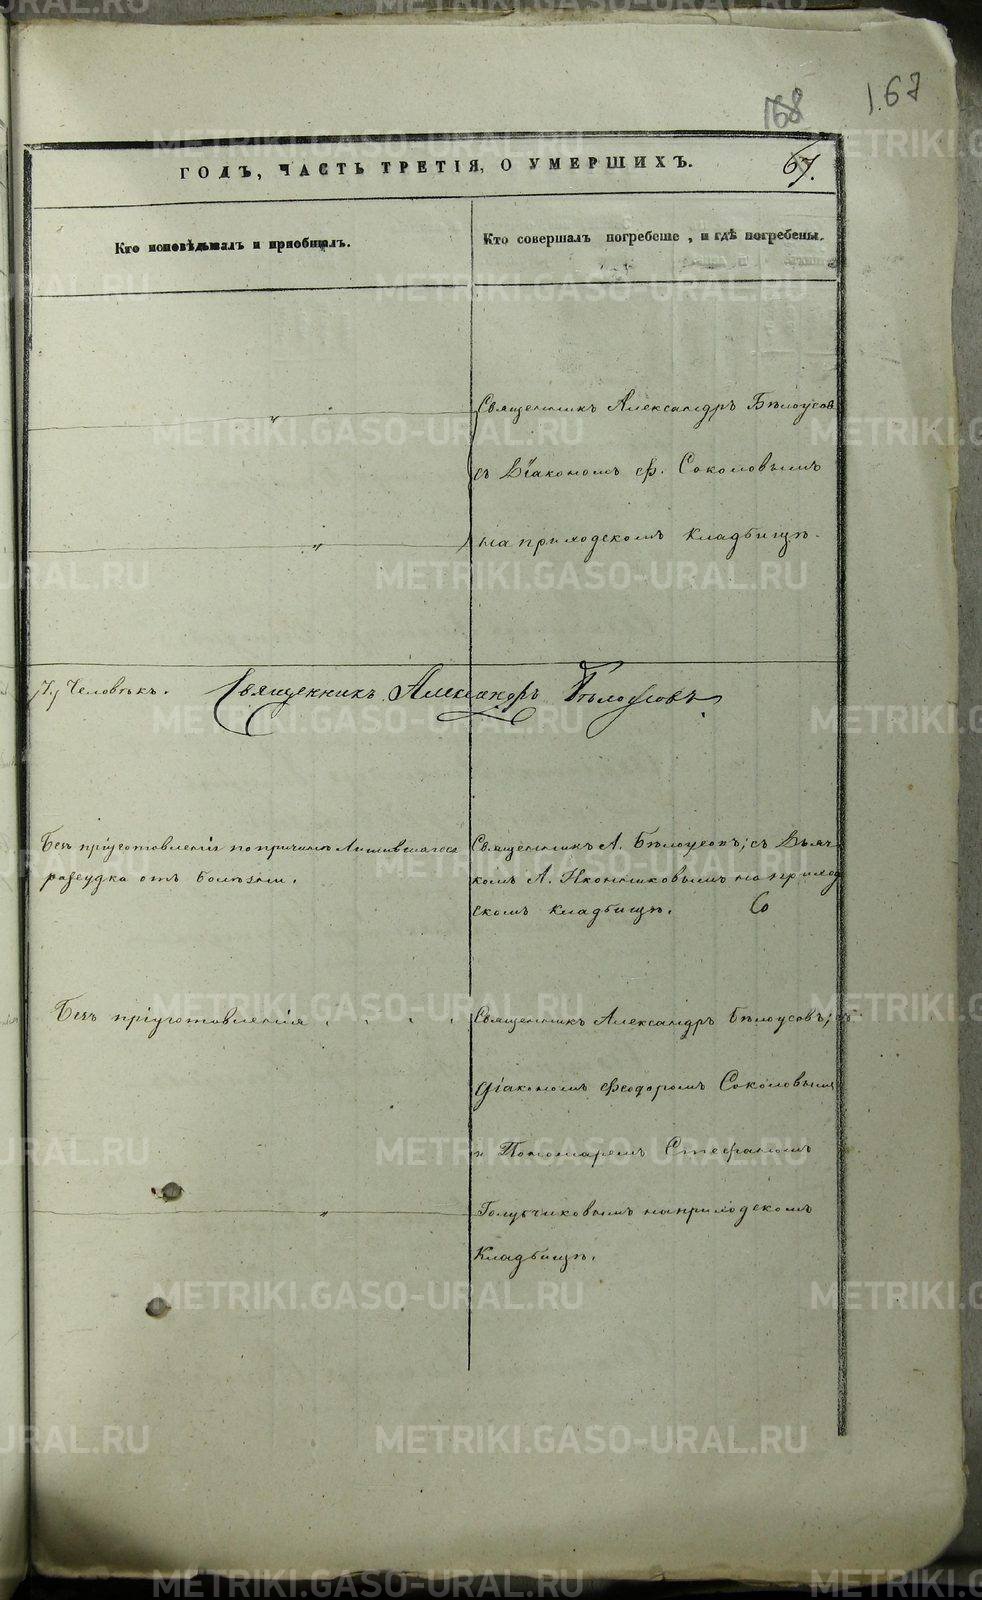 168
167
ГОДЪ, ЧАСТЬ ТРЕТІЯ, О УМЕРШИХЪ.
67.
Кто исповѣдывалъ и пріобщалъ.
Кто совершалъ погребеніе, и гдѣ погребены.
Священникъ Александръ Бѣлоусов
съ Діакономъ Ф. Соколовымъ
на приходскомъ кладбищѣ.
Человѣкъ. Священникъ Александръ Бѣлоусовъ
Безъ пріуготовленія по причинѣ лишившагося
разсудка отъ болѣзни.
Священникъ А. Бѣлоусовъ; съ Дьяч
комъ А. Иконниковымъ на приход
скомъ кладбищѣ.
Безъ пріуготовленія
Священникъ Александръ Бѣлоусовъ; съ
Діакономъ Феодоромъ Соколовымъ
и Пономаремъ Стефаномъ
Голубчиковымъ на приходскомъ
Кладбищѣ.
METRIKI.GASO-URAL.RU